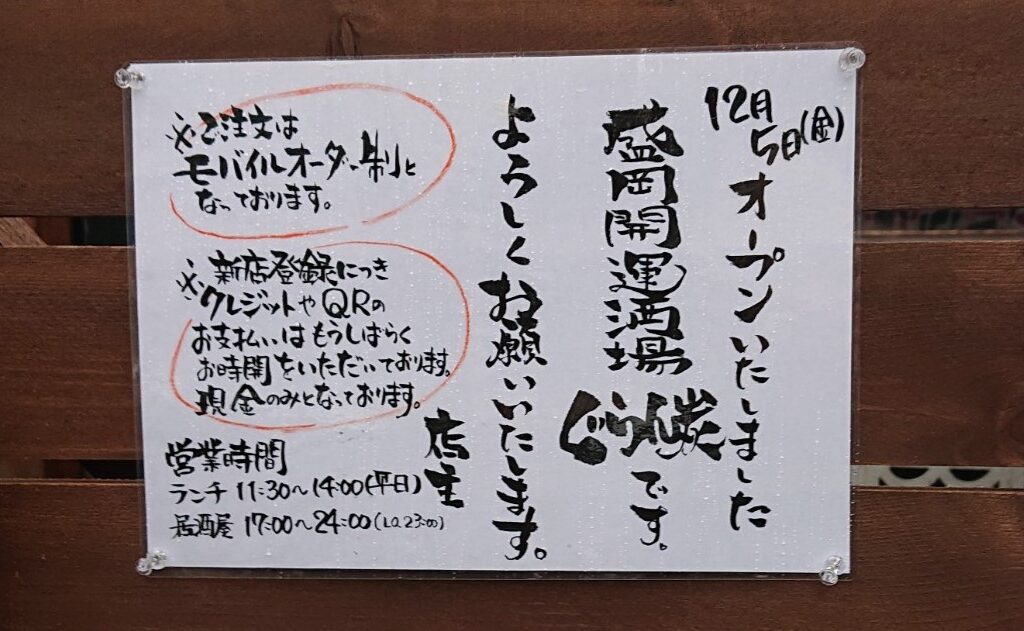 12月5日(金)オープンいたしました
盛岡開運酒場
ぐらん炭です。
よろしくお願いいたします。
店主
※ご注文は
モバイルオーダー制と
なっております。
※新店登録につき
クレジットやQRの
お支払いはもうしばらく
お時間をいただいております。
現金のみとなっております。
営業時間
ランチ 11:30～14:00(平日)
居酒屋 17:00～24:00(L.O.23:00)